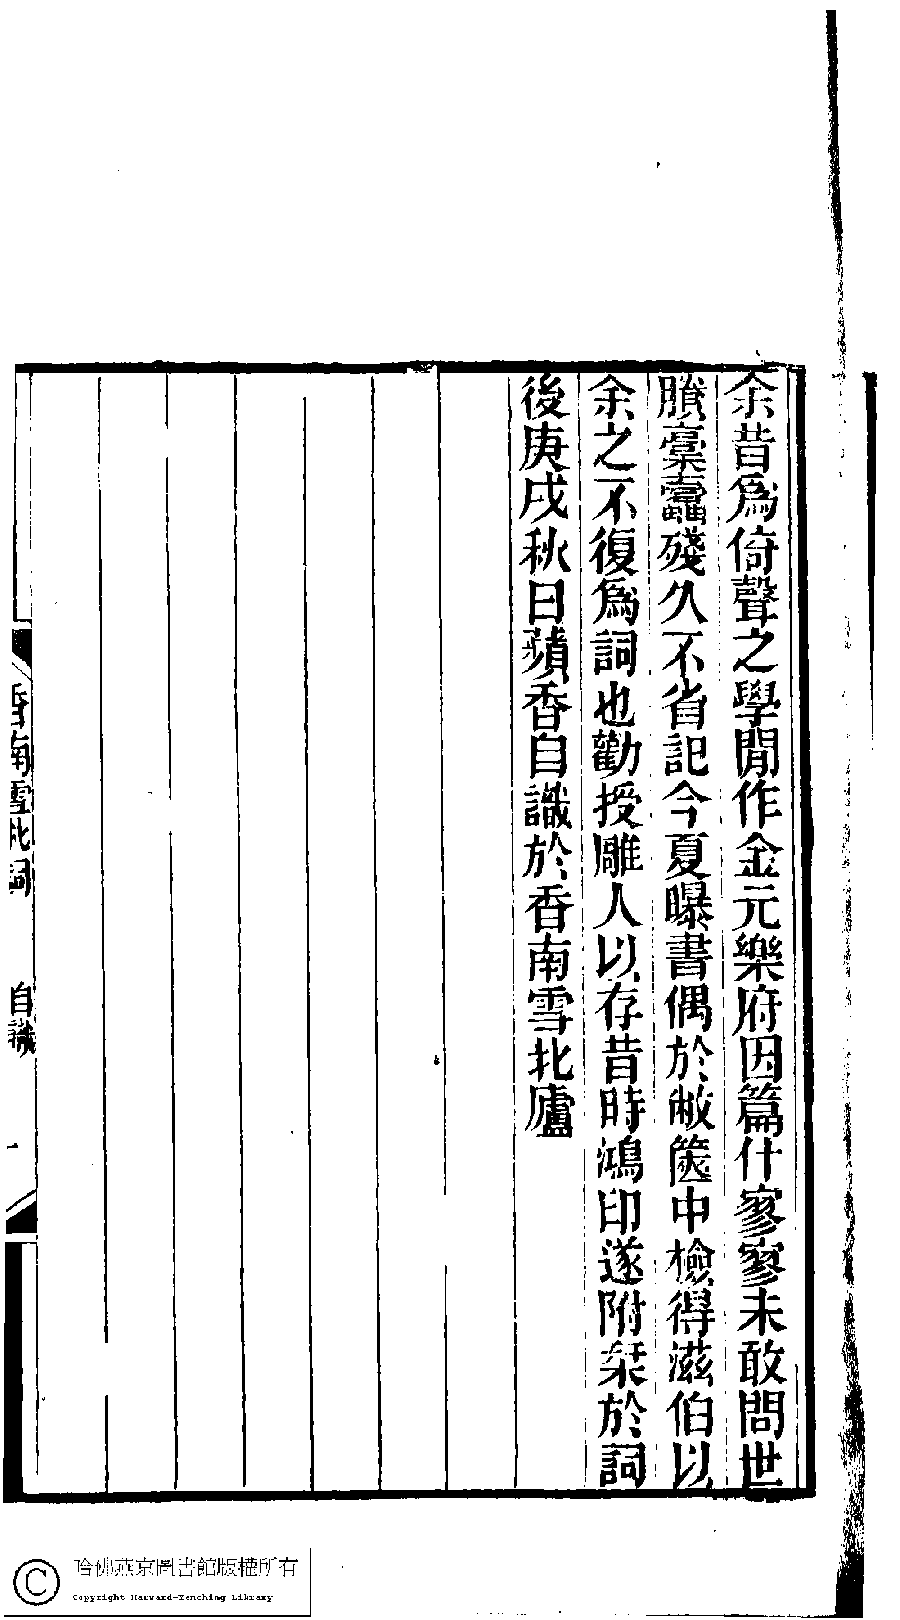 余昔爲倚聲之學閒作金元樂府因篇什寥寥未敢問世
賸稾蠹殘久不省記今夏曝書偶於敝篋中檢得滋伯以
余之不復爲詞也勸授雕人以存昔時鴻印遂附栞於詞
後庚戌秋日蘋香自識於香南雪北廬
香南雪北詞 自識 一
哈佛燕京圖書館版權所有
Copyright Harvard-Yenching Library